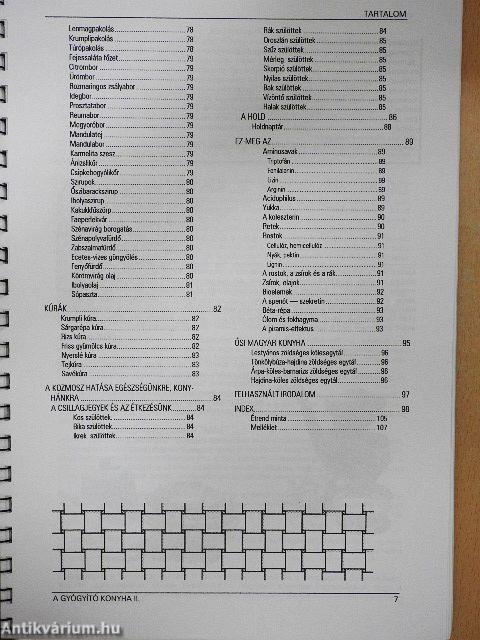 TARTALOM
Lenmagpakolás 78
Krumplipakolás 78
Túrópakolás 78
Fejessaláta főzet 79
Citrombor 79
Ürömbor 79
Rozmaringos zsályabor 79
Idegbor 79
Prosztatabor 79
Reumabor 79
Mogyoróbor 79
Mandulatej 79
Mandulabor 79
Karmelita szesz 79
Ánizslikőr 79
Csipkebogyólikőr 79
Szirupok 80
Őszibarackszirup 80
Ibolyaszirup 80
Kakukkfűszörp 80
Faeperlekvár 80
Szénavirág borogatás 80
Szénapolyvafürdő 80
Zabszalmafürdő 80
Ecetes-vizes göngyölés 80
Fenyőfürdő 80
Körömvirág olaj 80
Ibolyaolaj 81
Sópaszta 81
KÚRÁK 82
Krumpli kúra 82
Sárgarépa kúra 82
Rizs kúra 82
Friss gyümölcs kúra 82
Nyerslé kúra 83
Tejkúra 83
Savókúra 83
A KOZMOSZ HATÁSA EGÉSZSÉGÜNKRE, KONY-
HÁNKRA 84
A CSILLAGJEGYEK ÉS AZ ÉTKEZÉSÜNK 84
Kos szülöttek 84
Bika szülöttek 84
Ikrek szülöttek 84
Rák szülöttek 84
Oroszlán szülöttek 85
Szűz szülöttek 85
Mérleg szülöttek 85
Skorpió szülöttek 85
Nyilas szülöttek 85
Bak szülöttek 85
Vízöntő szülöttek 85
Halak szülöttek 85
A HOLD 86
Holdnaptár 88
EZ-MEG-AZ 89
Aminosavak 89
Triptofán 89
Fenilalanin 89
Lizin 89
Arginin 89
Acidophilus 89
Yukka 89
A koleszterin 90
Retek 90
Rostok 91
Cellulóz, hemicellulóz 91
Nyák, pektin 91
Lignin 91
A rostok, a zsírok és a rák 91
Zsírok, olajok 91
Bioelemek 92
A spenót — szekretin 92
Béta-répa 93
Ólom és fokhagyma 93
A piramis-effektus 93
ŐSI MAGYAR KONYHA 95
Lestyános zöldséges kölesegytál 96
Tönkölybúza-hajdina zöldséges egytál 96
Árpa-köles-barnarizs zöldséges egytál 96
Hajdina-köles zöldséges egytál 96
FELHASZNÁLT IRODALOM 97
INDEX 98
Étrend minta 105
Melléklet 107
A GYÓGYÍTÓ KONYHA II. 7
Antikvárium.hu